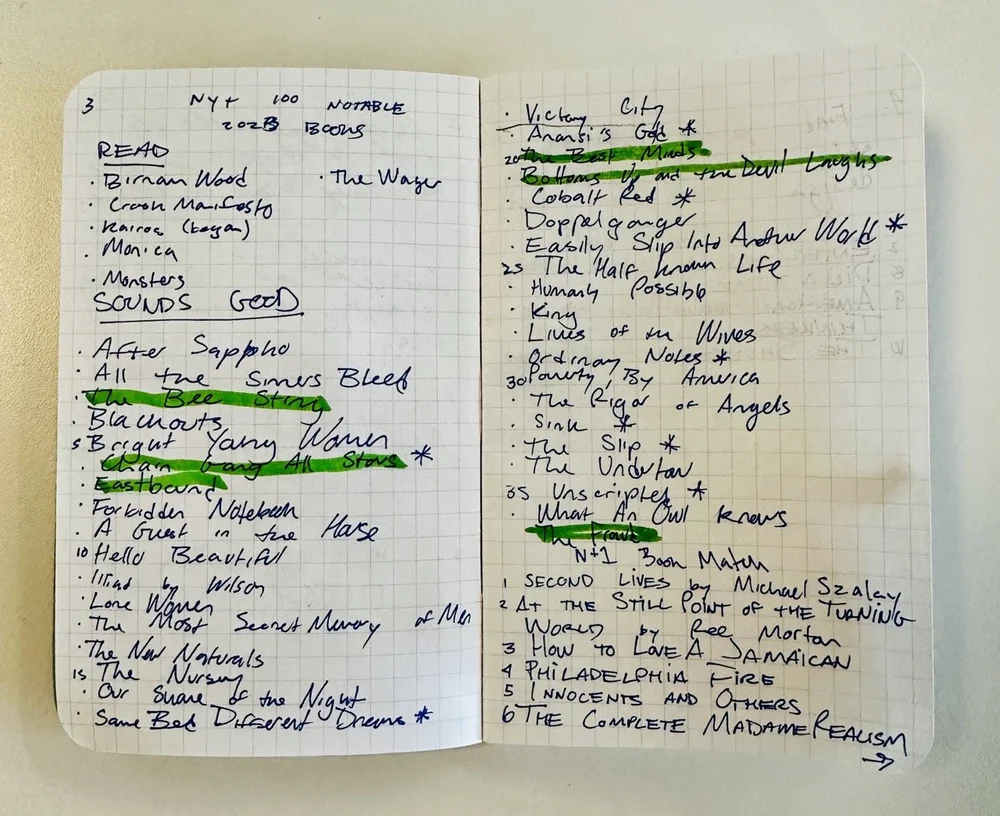 3 NYT 100 NOTABLE
2023 BOOKS
READ
· Birnam Wood · The Wager
· Crook Manifesto
· Kairos (began)
· Monica
· Monsters
SOUNDS GOOD
· After Sappho
· All the Sinners Bleed
· The Bee Sting
· Blackouts
5 Bright Young Women
· Chain Gang All Stars *
· Eastbound
· Forbidden Notebook
· A Guest in the House
10 Hello Beautiful
· Iliad by Wilson
· Lone Women
· The Most Secret Memory of Men
· The New Naturals
15 The Nursery
· Our Share of the Night
· Same Bed Different Dreams *
· Victory City
· Anansi's Gold *
20 The Best Minds
· Bottoms Up and the Devil Laughs
· Cobalt Red *
· Doppelganger
· Easily Slip Into Another World *
25 The Half Known Life
· Humanly Possible
· King
· Lives of the Wives
· Ordinary Notes *
30 Poverty, By America
· The Rigor of Angels
· Sink *
· The Slip *
· The Undertow
35 Unscripted *
· What An Owl Knows
The Fraud
N+1 Book Match
1 SECOND LIVES by Michael Szalay
2 At THE STILL POINT OF THE TURNING
WORLD by Ree Morton
3 HOW TO LOVE A JAMAICAN
4 PHILADELPHIA FIRE
5 INNOCENTS AND OTHERS
6 THE COMPLETE MADAME REALISM
→